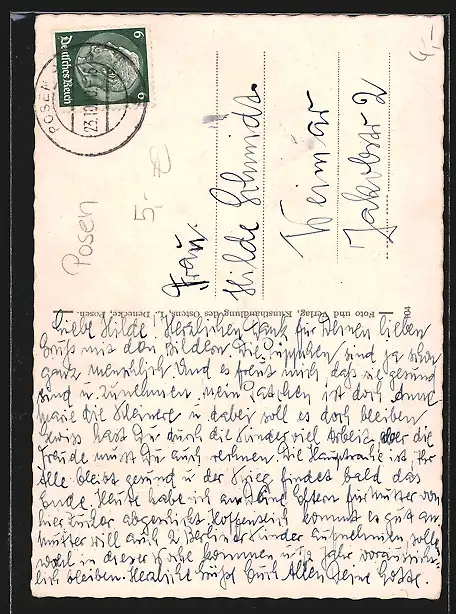 Deutsches Reich
6
6
POSEN
23.10.
Posen
5,- €
4,-
Frau
Hilde Schmidt.
Weimar
Jakobstr 2
Foto und Verlag, Kunsthandlung des Ostens, L. Denecke, Posen.
Liebe Hilde. Herzlichen Dank für Deinen lieben
Gruß mit den Bildern. Die sind ja schon
ganz menschlich. Und es freut mich daß sie gesund
sind u. zunehmen. mein ist doch Anne-
marie die Kleinere u. dabei soll es doch bleiben
gewiss hast Du durch die Kinder viel Arbeit, aber die
Freude musst Du auch rechnen. Die Hauptsache ist, Ihr
Alle bleibt gesund u. der Krieg findet bald das
Ende. Heute habe ich an Deine Eltern für Mutter von
hier Zucker abgeschickt. Hoffentlich kommt es gut an.
Mutter will auch 2 Berliner Kinder aufnehmen, sollen
wohl in dieser Woche kommen u. 1/2 Jahr voraussicht-
lich bleiben. Herzliche Grüße Euch Allen Deine